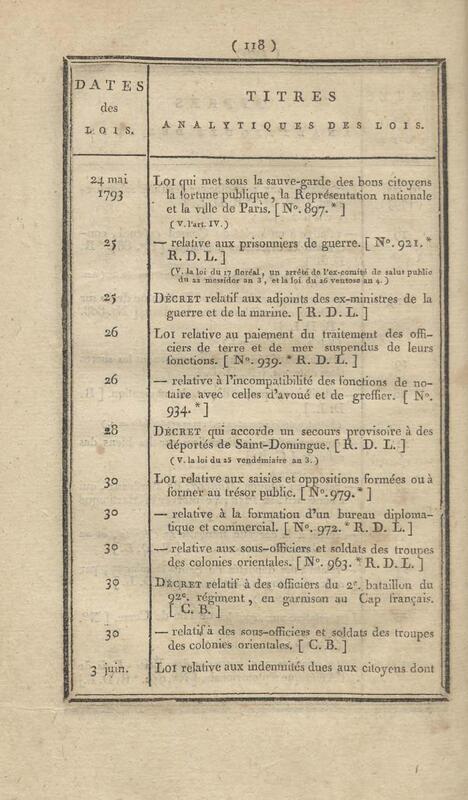 ( 118 )
DATES
des
LOIS.
TITRES
ANALYTIQUES DES LOIS.
24 mai
1793
LOI qui met sous la sauve-garde des bons citoyens
la fortune publique, la Représentation nationale
et la ville de Paris. [ N°. 897. * ]
( V. l'art. IV. )
25
— relative aux prisonniers de guerre. [ N°. 921. *
R. D. L. ]
( V. la loi du 17 floréal, un arrêté de l'ex-comité de salut public
du 22 messidor an 3, et la loi du 26 ventose an 4. )
25
DÉCRET relatif aux adjoints des ex-ministres de la
guerre et de la marine. [ R. D. L. ]
26
LOI relative au paiement du traitement des offi-
ciers de terre et de mer suspendus de leurs
fonctions. [ N°. 939. * R. D. L. ]
26
— relative à l'incompatibilité des fonctions de no-
taire avec celles d'avoué et de greffier. [ N°.
934. * ]
28
DÉCRET qui accorde un secours provisoire à des
déportés de Saint-Domingue. [ R. D. L. ]
( V. la loi du 25 vendémiaire an 3. )
30
LOI relative aux saisies et oppositions formées ou à
former au trésor public. [ N°. 979. * ]
30
— relative à la formation d'un bureau diploma-
tique et commercial. [ N°. 972. * R. D. L. ]
30
— relative aux sous-officiers et soldats des troupes
des colonies orientales. [ N°. 963. * R. D. L. ]
30
DÉCRET relatif à des officiers du 2e. bataillon du
92e. régiment, en garnison au Cap français.
[ C. B. ]
30
— relatif à des sous-officiers et soldats des troupes
des colonies orientales. [ C. B. ]
3 juin.
LOI relative aux indemnités dues aux citoyens dont